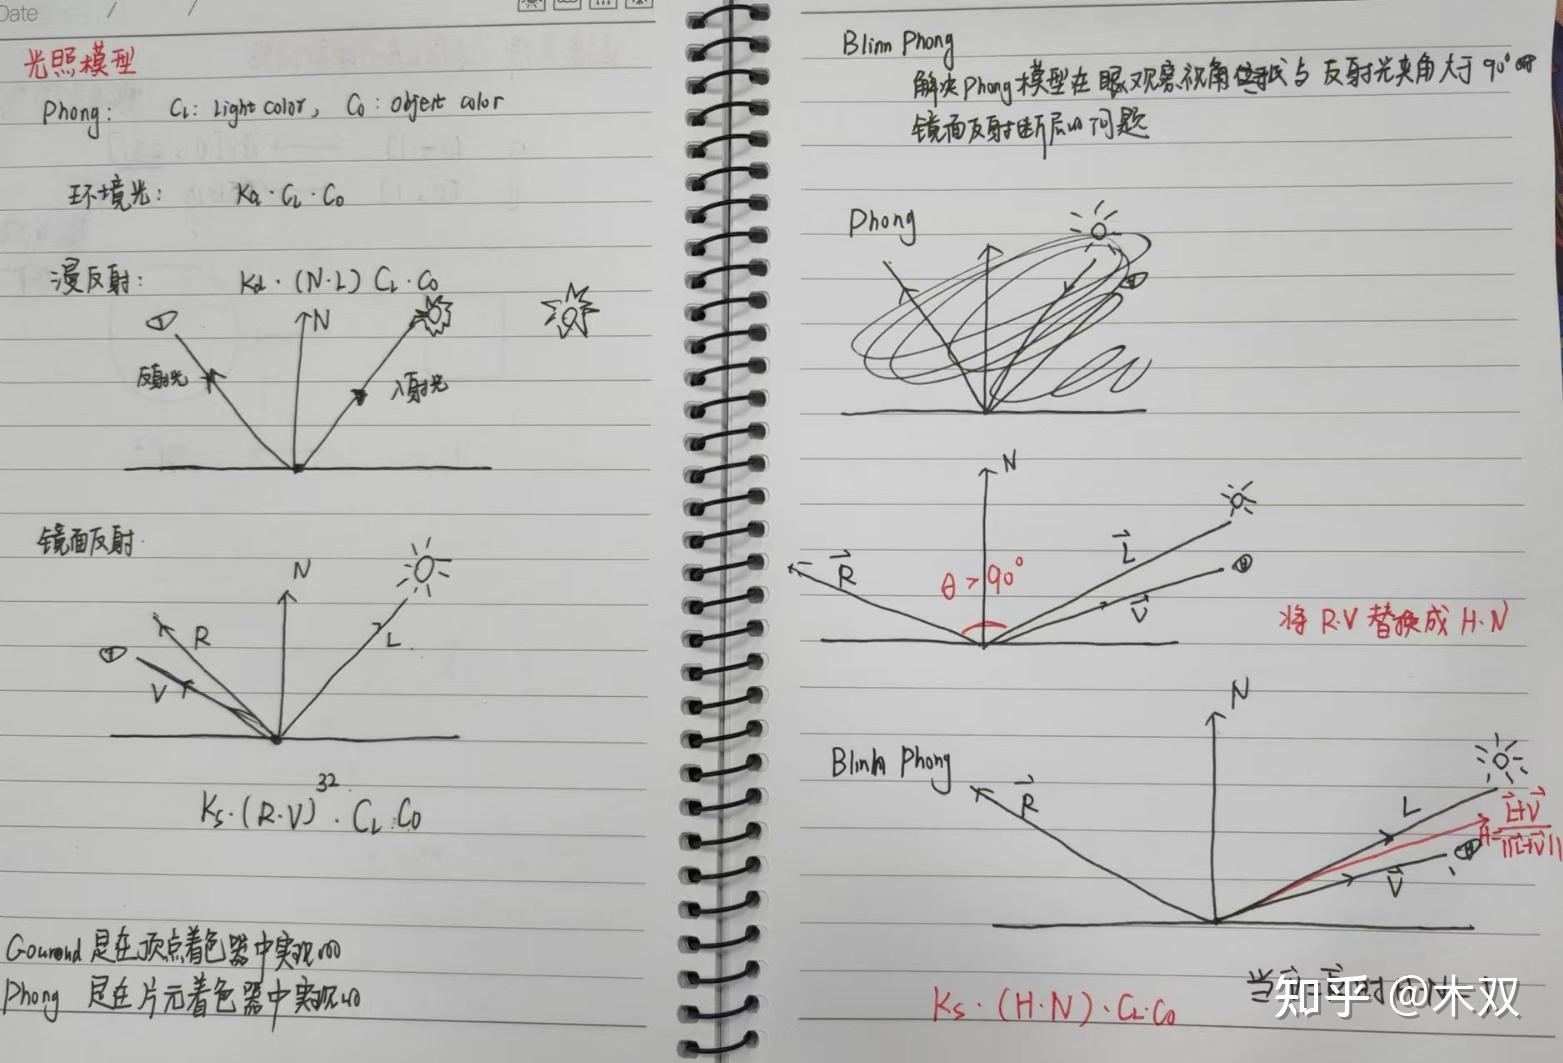 Date / /
光照模型
Phong: CL: Light color, CO: object color
环境光: Ka·CL·CO
漫反射: Kd·(N·L) CL·CO
N
反射光
入射光
镜面反射
N
R
L
V
Ks·(R·V)^32·CL·CO
Gouroud 是在顶点着色器中实现的
Phong 是在片元着色器中实现的
Blinn Phong
解决Phong模型在眼观察视角与反射光夹角大于90°时
镜面反射断层的问题
Phong
N
R
θ>90°
L
V
将 R·V 替换成 H·N
N
Blinn Phong
R
L
H=L+V/||L+V||
V
Ks·(H·N)·CL·CO
当
时
知乎 @木双